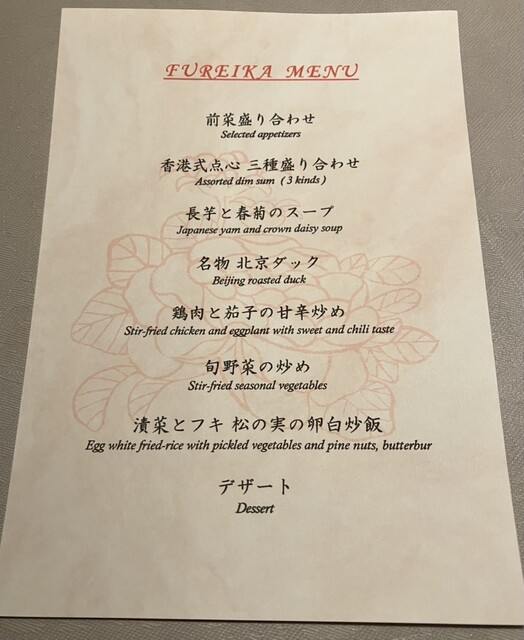 FUREIKA MENU
前菜盛り合わせ
Selected appetizers
香港式点心 三種盛り合わせ
Assorted dim sum ( 3 kinds )
長芋と春菊のスープ
Japanese yam and crown daisy soup
名物 北京ダック
Beijing roasted duck
鶏肉と茄子の甘辛炒め
Stir-fried chicken and eggplant with sweet and chili taste
旬野菜の炒め
Stir-fried seasonal vegetables
漬菜とフキ 松の実の卵白炒飯
Egg white fried-rice with pickled vegetables and pine nuts, butterbur
デザート
Dessert